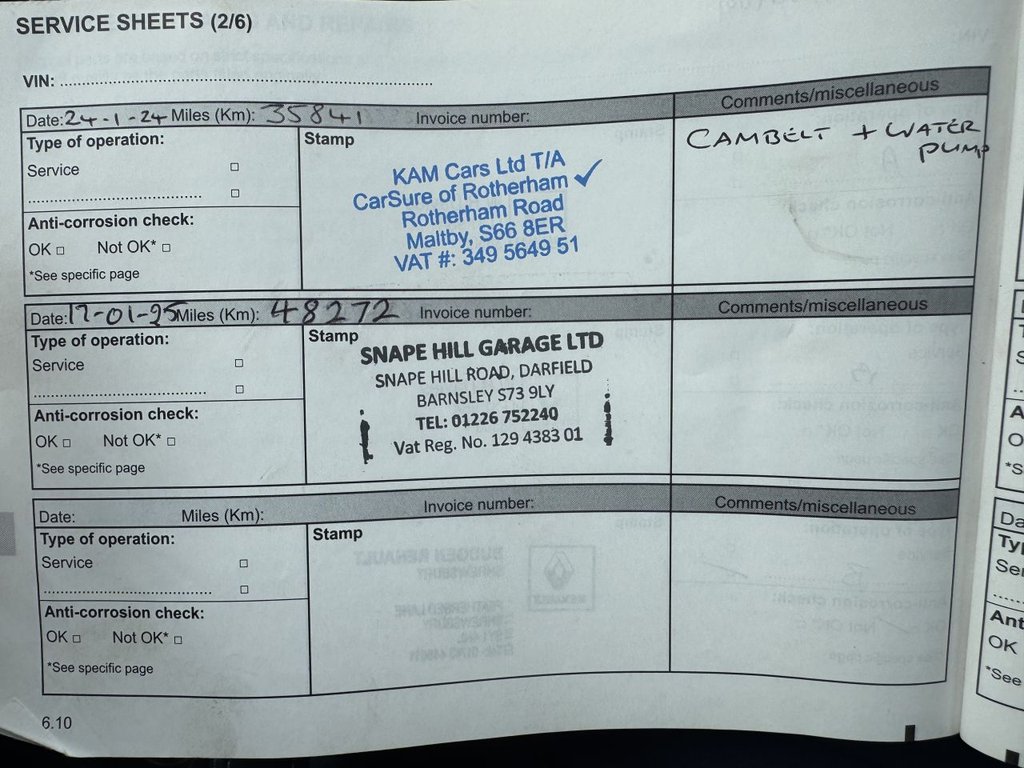 SERVICE SHEETS (2/6)
VIN: ..........................................................................................
Date: 24-1-24 Miles (Km): 35841 Invoice number:
Comments/miscellaneous
Type of operation:
Service □
............................................ □
Anti-corrosion check:
OK □ Not OK* □
*See specific page
Stamp
KAM Cars Ltd T/A
CarSure of Rotherham ✓
Rotherham Road
Maltby, S66 8ER
VAT #: 349 5649 51
CAMBELT + WATER
PUMP
Date: 17-01-25 Miles (Km): 48272 Invoice number:
Comments/miscellaneous
Type of operation:
Service □
............................................ □
Anti-corrosion check:
OK □ Not OK* □
*See specific page
Stamp
SNAPE HILL GARAGE LTD
SNAPE HILL ROAD, DARFIELD
BARNSLEY S73 9LY
TEL: 01226 752240
Vat Reg. No. 129 4383 01
Date: Miles (Km): Invoice number:
Comments/miscellaneous
Type of operation:
Service □
............................................ □
Anti-corrosion check:
OK □ Not OK* □
*See specific page
Stamp
6.10